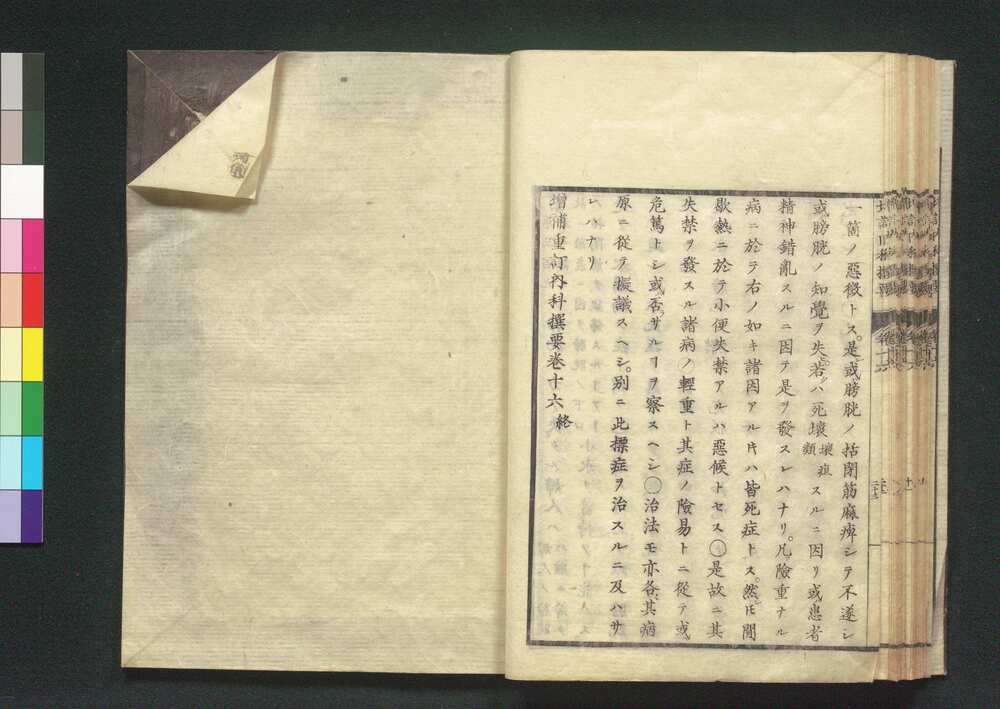 一箇ノ惡徴トス。是或膀胱ノ括閉筋麻痺シテ不遂シ
或膀胱ノ知覺ヲ失。若クハ死壞壞疽類スルニ因リ或患者
精神錯亂スルニ因テ是ヲ發スレハナリ。凡險重ナル
病ニ於テ右ノ如キ諸因アルキハ皆死症トス。然𪜈間
歇熱ニ於テ小便失禁アルハ惡候トセス〇是故ニ其
失禁ヲ發スル諸病ノ輕重ト其症ノ險易トニ從テ或
危篤トシ或否サルヿヲ察スヘシ〇治法モ亦各其病
原ニ從テ擬議スヘシ。別ニ此標症ヲ治スルニ及ハサ
レハナリ
增補重訂內科撰要卷十六 終